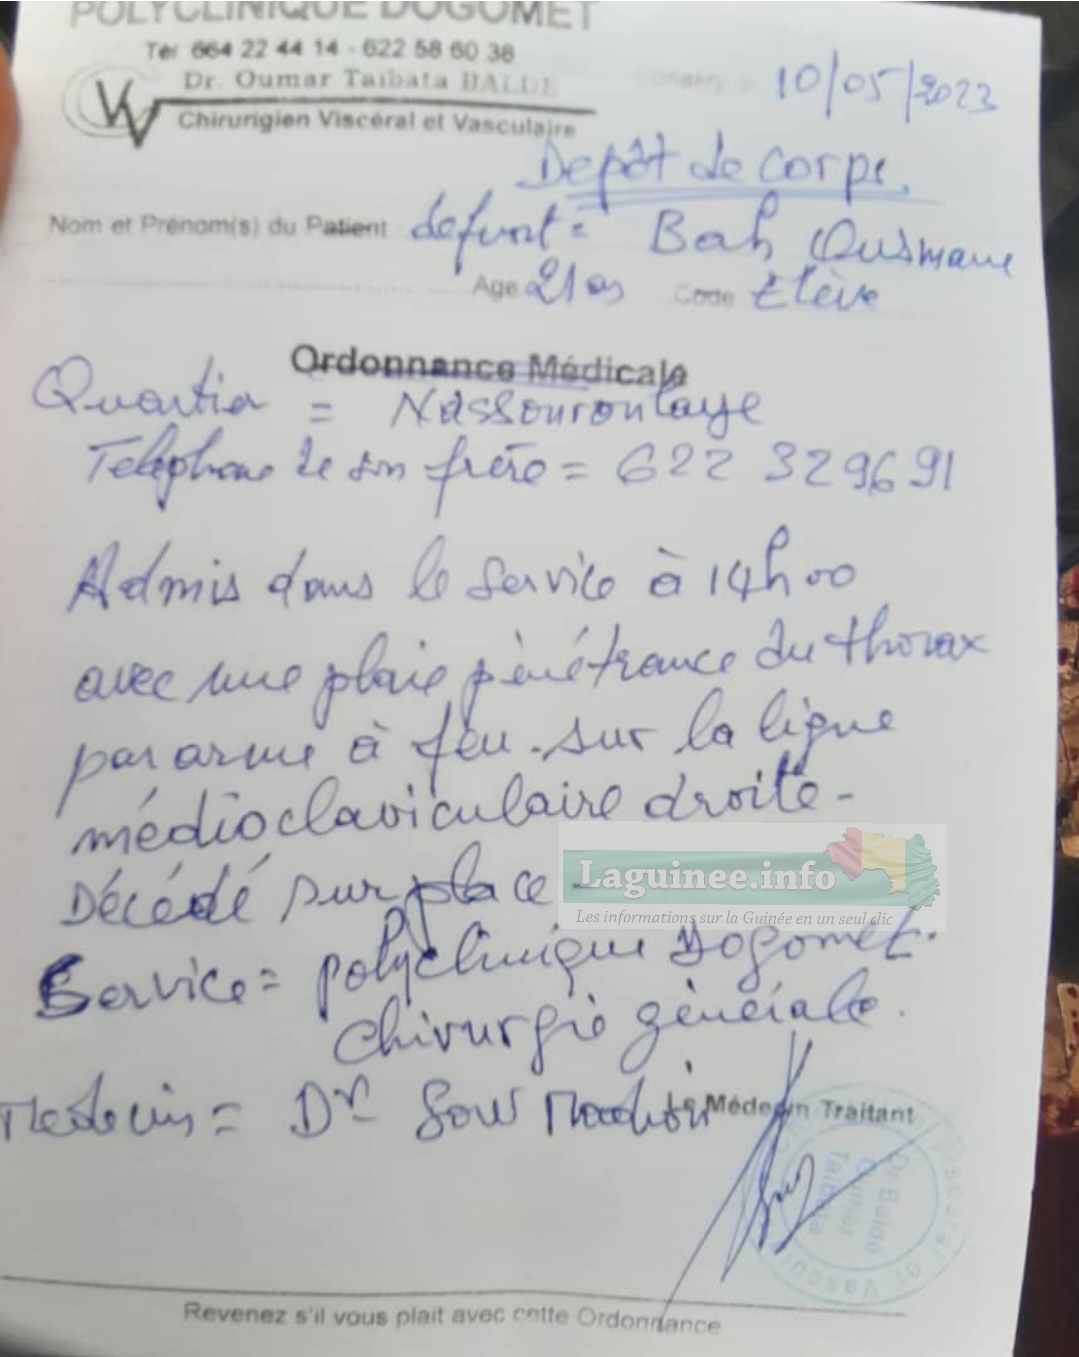 POLYCLINIQUE DOGOMET
Tél 664 22 44 14 - 622 58 60 38
Dr. Oumar Taibata BALDE
Chirurigien Viscéral et Vasculaire
Conakry le 10/05/2023
Depôt de corps.
Nom et Prénom(s) du Patient defunt = Bah Ousmane
Age 21 ans Code Elève
Ordonnance Médicale
Quartier = Nassouroulaye
Telephone de son frère = 622 329691
Admis dans le service à 14h00
avec une plaie pénétrance du thorax
par arme à feu. sur la ligne
médioclaviculaire droite -
Décédé sur place -
Laguinee.info
Les informations sur la Guinée en un seul clic
Service = polyclinique Dogomet.
chirurgie générale.
Medecin = Dr Sow
Le Médecin Traitant
Dr Balde
Oumar
Taibata
Viscéral et Vascul
Revenez s'il vous plait avec cette Ordonnance